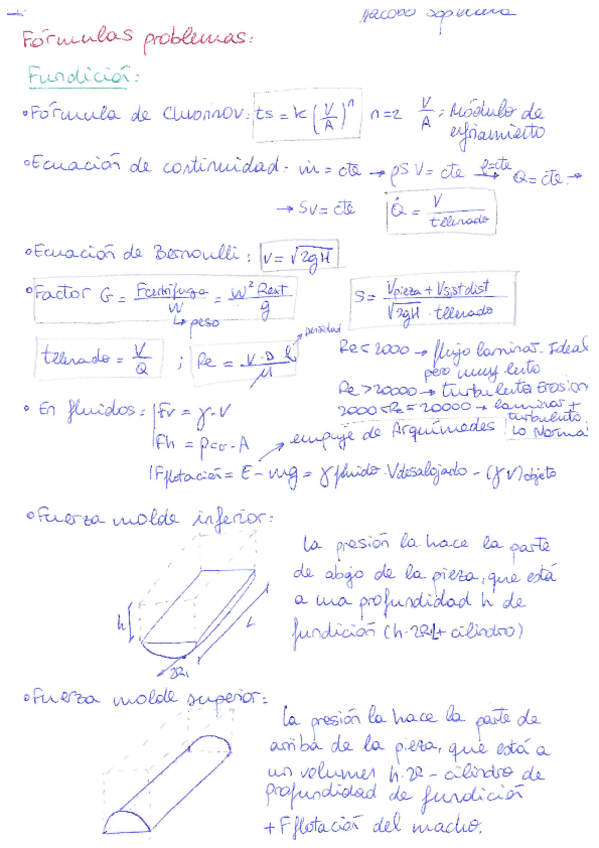 Fórmulas problemas:
Fundición:
•Fórmula de Chvorinov: ts = k (V/A)^n n=2 V/A: Módulo de enfriamiento
•Ecuación de continuidad: ṁ = cte → ρSV = cte ρ=cte → Q = cte →
→ SV = cte Q̇ = V/tllenado
•Ecuación de Bernoulli: V = √2gH
•Factor G = Fcentrífuga/W = W² Rext/g S = Vpieza + Vsist dist/√2gH · tllenado
↳ peso
tllenado = V/Q ; Re = V·D ρ/μ densidad
Re < 2000 → flujo laminar. Ideal
pero muy lento
Re > 20000 → turbulenta Erosion
2000 < Re = 20000 → laminar +
turbulento
Lo Norma
• En fluidos: Fv = γ·V
Fh = Pcg·A → empuje de Arquímedes
Fflotación = E - mg = γfluido·Vdesalojado - (γV)objeto
•Fuerza molde inferior:
La presión la hace la parte
de abajo de la pieza, que está
a una profundidad h de
fundición (h·2R·L + cilindro)
h
L
2R
•Fuerza molde superior:
La presión la hace la parte de
arriba de la pieza, que está a
un volumen h·2R - cilindro de
profundidad de fundición
+ Fflotación del macho.